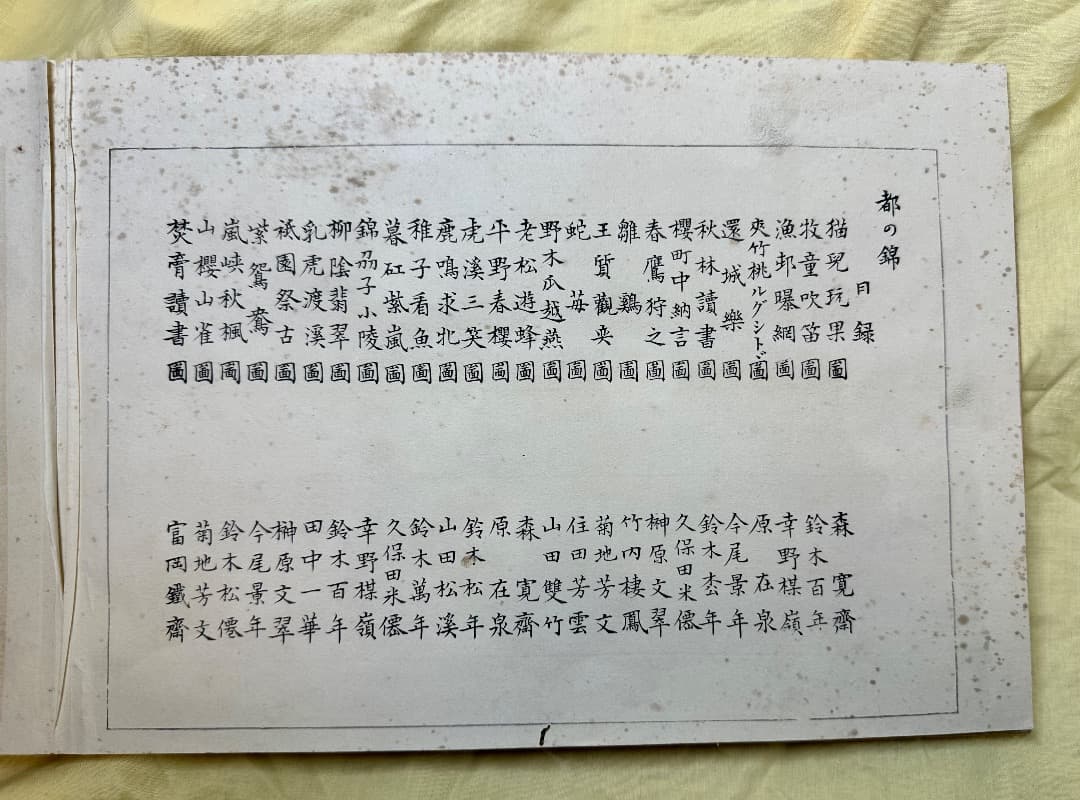 都の錦
目録
猫兒玩果圖 森寛齋
牧童吹笛圖 鈴木百年
漁邨曝網圖 幸野楳嶺
夾竹桃ルグシトド圖 原在泉
還城樂圖 今尾景年
秋林讀書圖 鈴木枩年
櫻町中納言圖 久保田米僊
春鷹狩之圖 榊原文翠
雛鷄圖 竹内棲鳳
王質觀奕圖 菊地芳文
蛇苺圖 住田芳雲
野木瓜越燕圖 山田雙竹
老松遊蜂圖 森寛齋
平野春櫻圖 原在泉
虎溪三笑圖 鈴木松年
鹿鳴求北圖 山田松溪
稚子看魚圖 鈴木萬年
暮紅紫嵐圖 久保田米僊
錦茘子小陵圖 幸野楳嶺
柳陰翡翠圖 鈴木百年
乳虎渡溪圖 田中一華
祇園祭古圖 榊原文翠
紫鴛鴦圖 今尾景年
嵐峡秋楓圖 鈴木松僊
山櫻山雀圖 菊地芳文
焚膏讀書圖 富岡鐵齋